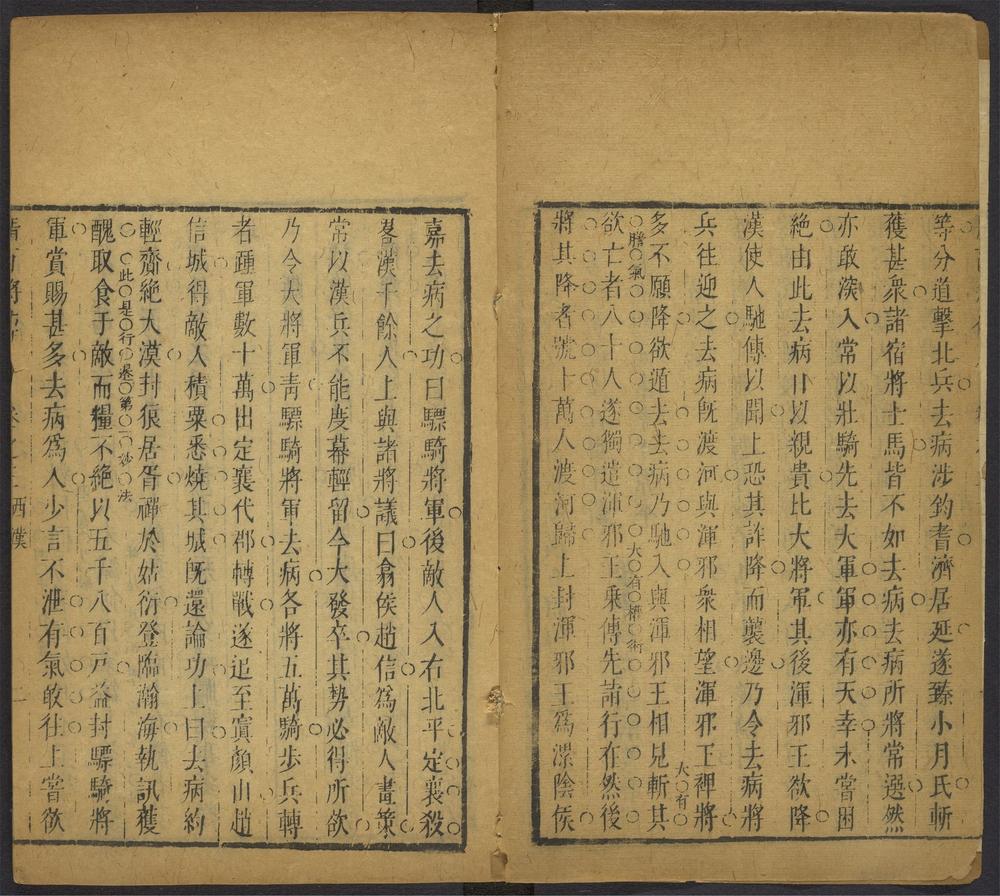 等分道擊北兵去病涉鈞耆濟居延遂臻小月氏斬
獲甚衆諸宿將士馬皆不如去病去病所將常選然
亦敢深入常以壯騎先去大軍軍亦有天幸未嘗困
絶由此去病日以親貴比大將軍其後渾邪王欲降
漢使人馳傳以聞上恐其詐降而襲邊乃令去病將
兵往迎之去病既渡河與渾邪衆相望渾邪王裨將
大有
多不願降欲遁去去病乃馳入與渾邪王相見斬其
膽氣
大有權術
欲亡者八十人遂獨遣渾邪王乘傳先詣行在然後
將其降者號十萬人渡河歸上封渾邪王爲漯陰侯
嘉去病之功曰驃騎將軍後敵人入右北平定襄殺
畧漢千餘人上與諸將議曰翕侯趙信爲敵人畫策
常以漢兵不能度幕輕留今大發卒其势必得所欲
乃令大將軍青驃騎將軍去病各將五萬騎歩兵轉
者踵軍數十萬出定襄代郡轉戰遂追至窴顏山趙
信城得敵人積粟悉燒其城既還論功上曰去病約
輕齎絶大漠封狼居胥禪於姑衍登臨瀚海執訊獲
此是行邊第一妙法
醜取食于敵而糧不絶以五千八百戸益封驃騎將
軍賞賜甚多去病爲人少言不泄有氣敢往上嘗欲
卷之三 西漢